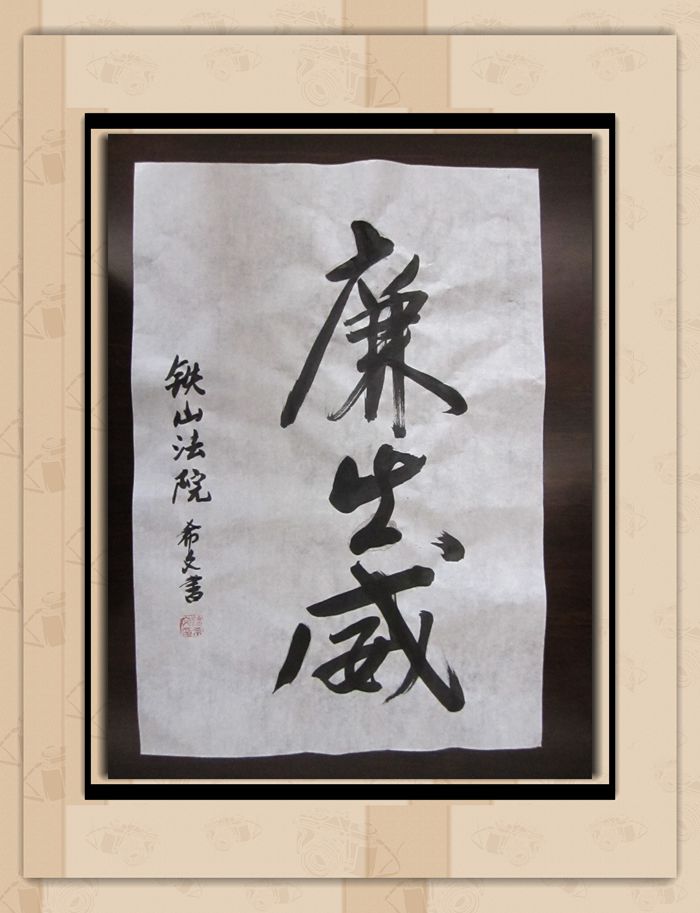 廉生威
铁山法院
希文書